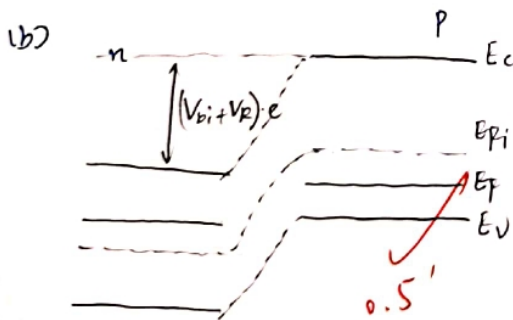 (b)
n
P
Ec
(Vbi+VR)·e
EFi
EF
Ev
0.5'